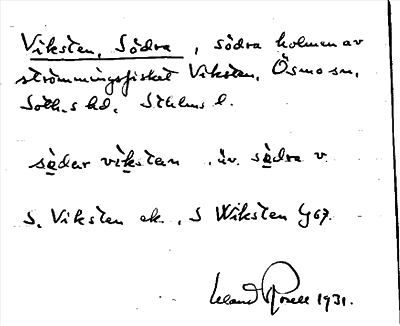 Viksten, Södra, södra holmen av
strömmingsfisket Viksten, Ösmo sn,
Soth.s hd, Sthlms l.
södar viksten, äv. södra v.
S. Viksten ek., S Wiksten G 67.
Rosell 1931.